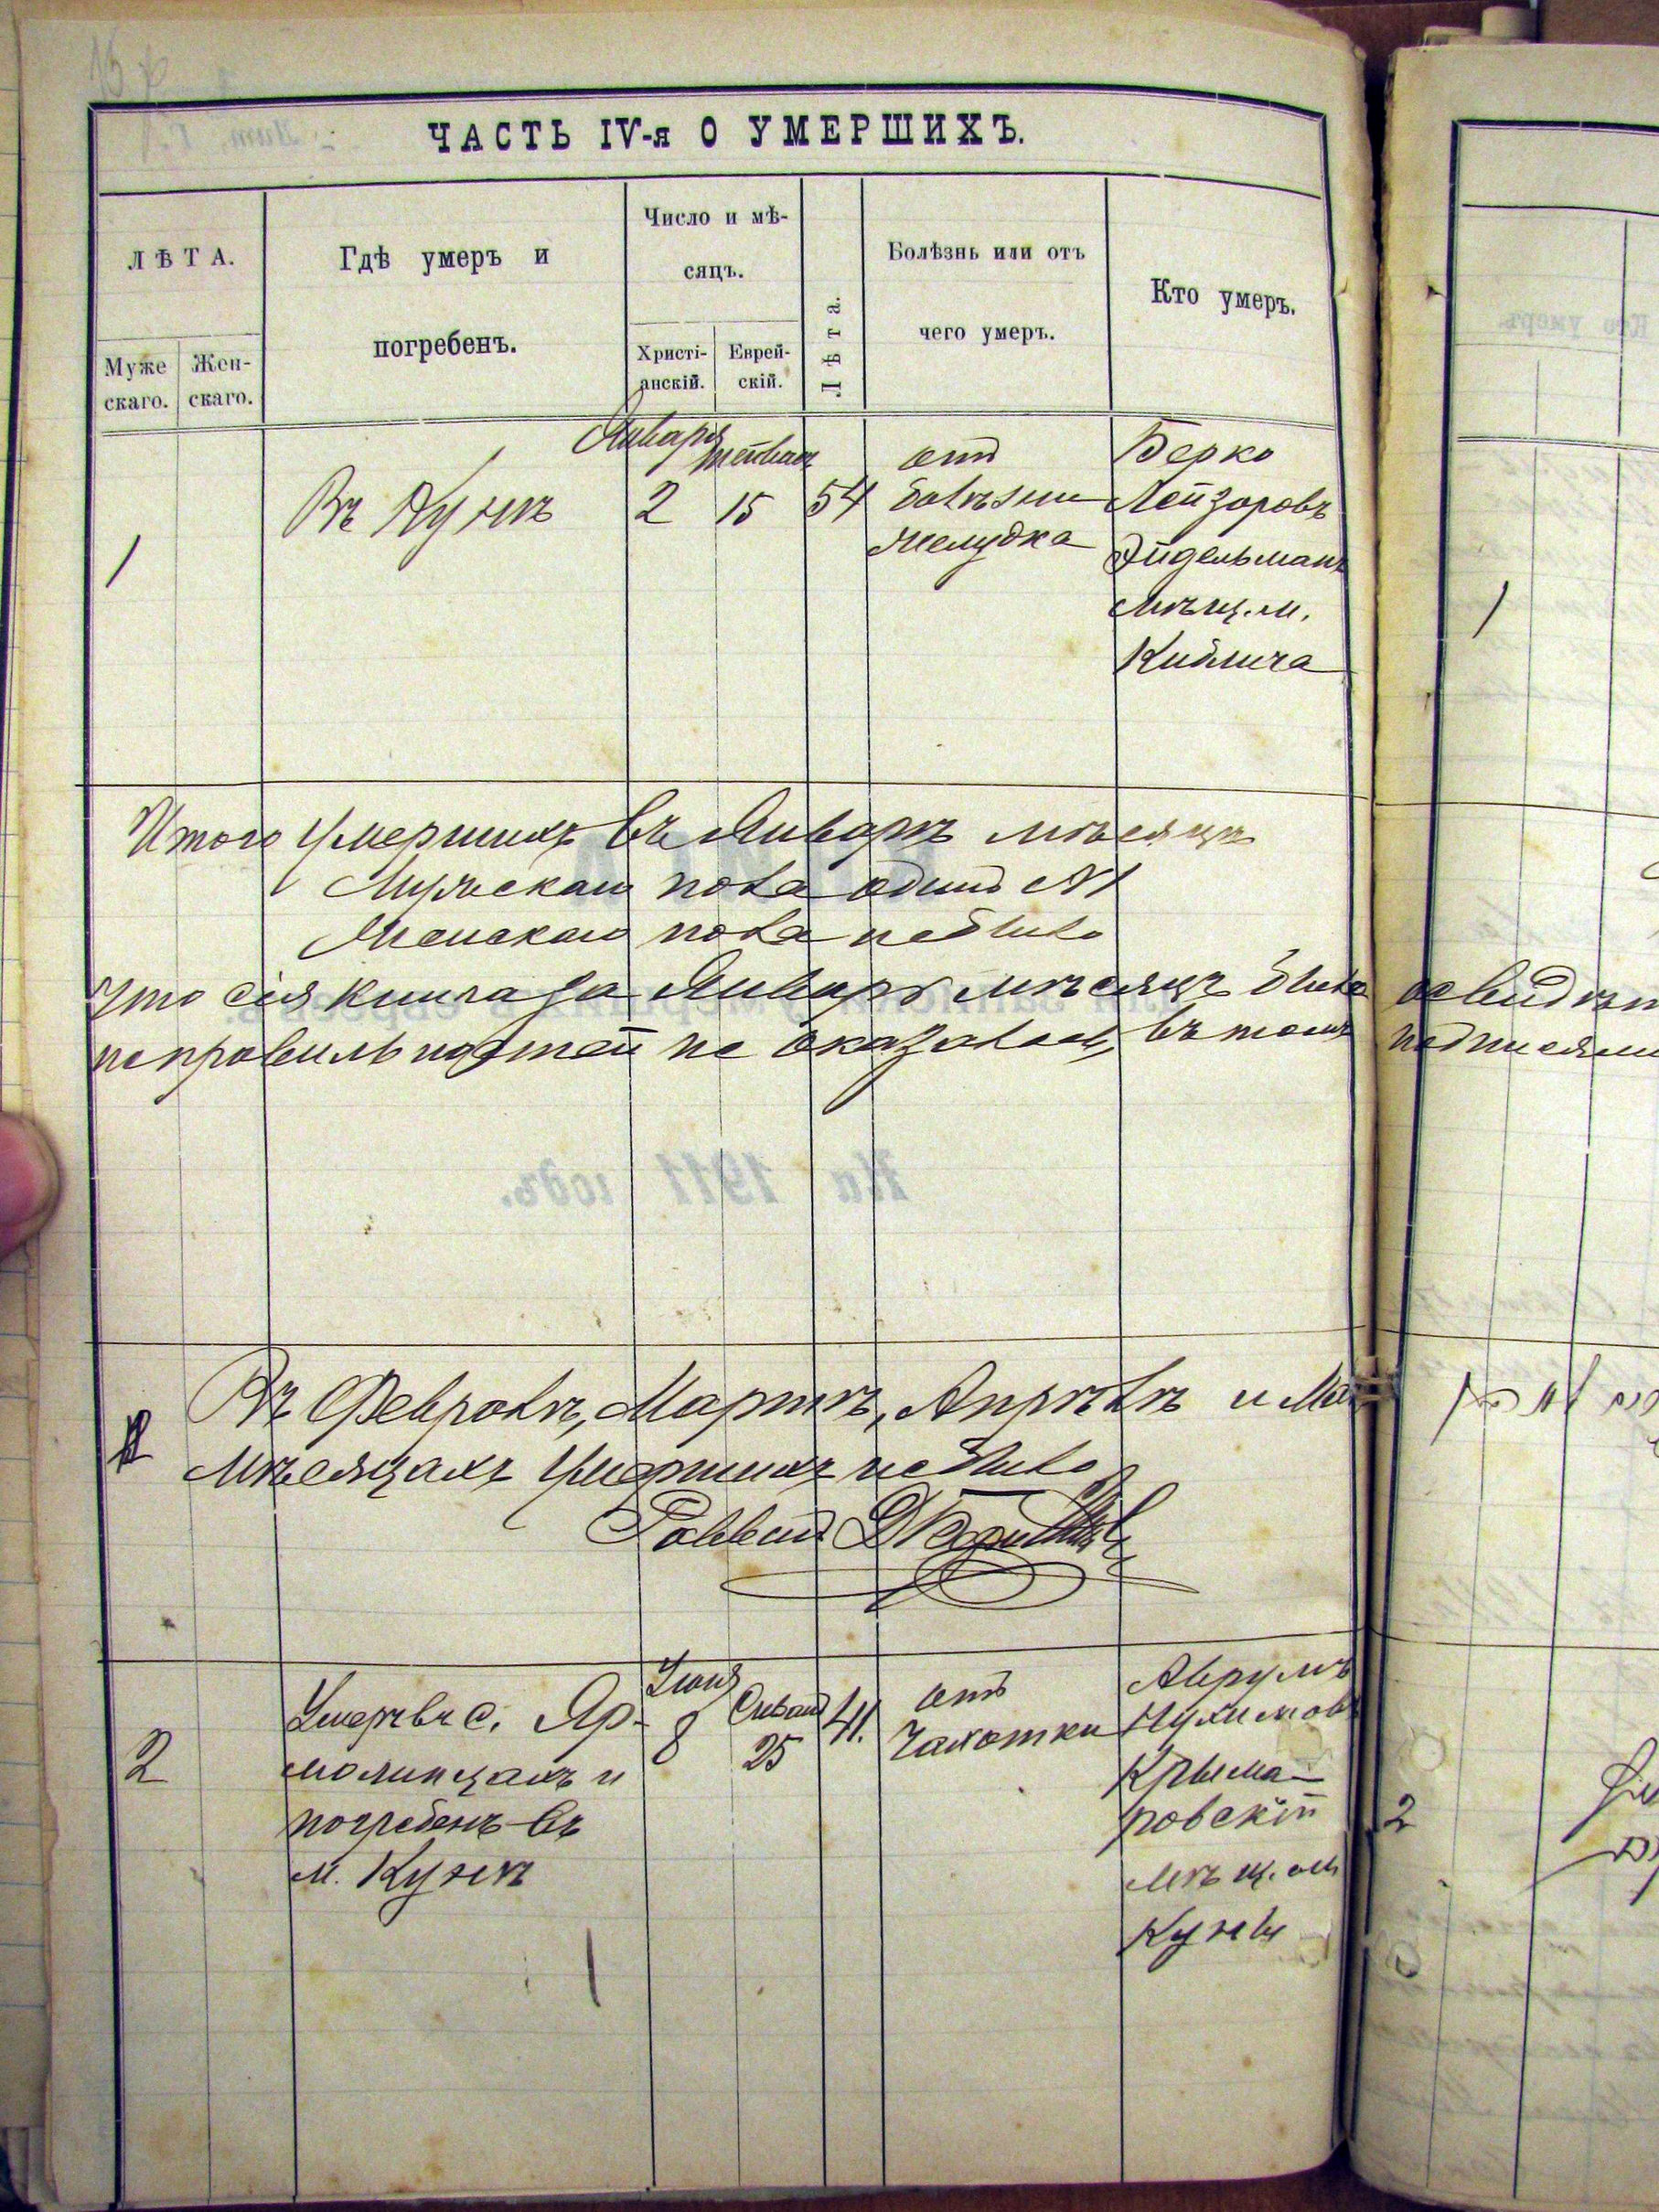 ЧАСТЬ IV-я О УМЕРШИХЪ.
ЛѢТА.
Муже
скаго.
Жен-
скаго.
Гдѣ умеръ и
погребенъ.
Число и мѣ-
сяцъ.
Христі-
анскій.
Еврей-
скій.
Лѣта.
Болѣзнь или отъ
чего умеръ.
Кто умеръ.
1
Въ Кунѣ
Января
2
15
54
отъ
болѣзни
желудка
Берко
Лейзоровъ
Эйдельманъ
мѣщ. м.
Кублича
1
Итого умершихъ въ Январѣ мѣсяцѣ
Мужскаго пола одинъ №1
Женскаго пола не было
Что сія книга за Январь мѣсяцъ была
неправильностей не оказалось, въ томъ
На 1911 годъ.
Въ Февралѣ, Мартѣ, Апрѣлѣ и Ма
мѣсяцахъ умершихъ не было
Раввинъ
2
Умеръ въ с. Яр-
молинцахъ и
погребенъ въ
м. Кунѣ
Іюня
8
Сивана
25
41.
отъ
Чахотки
Аврумъ
Нухимовъ
Крыма-
ровскій
мѣщ. м.
Куны
2